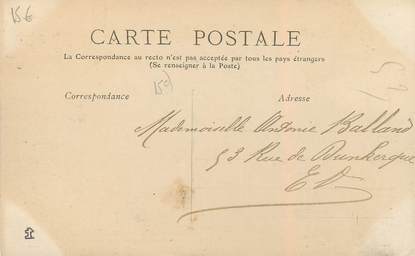 15€
CARTE POSTALE
La Correspondance au recto n'est pas acceptée par tous les pays étrangers
(Se renseigner à la Poste)
Correspondance
Adresse
Mademoiselle Antonie Balland
53 Rue de Dunkerque
EV